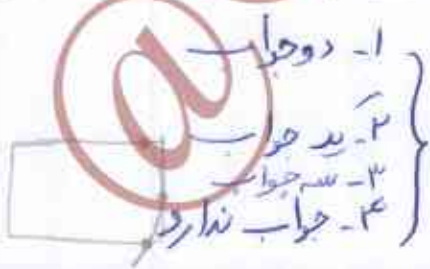 ۱- دو جواب
۲- یک جواب
۳- سه جواب
۴- جواب ندارد